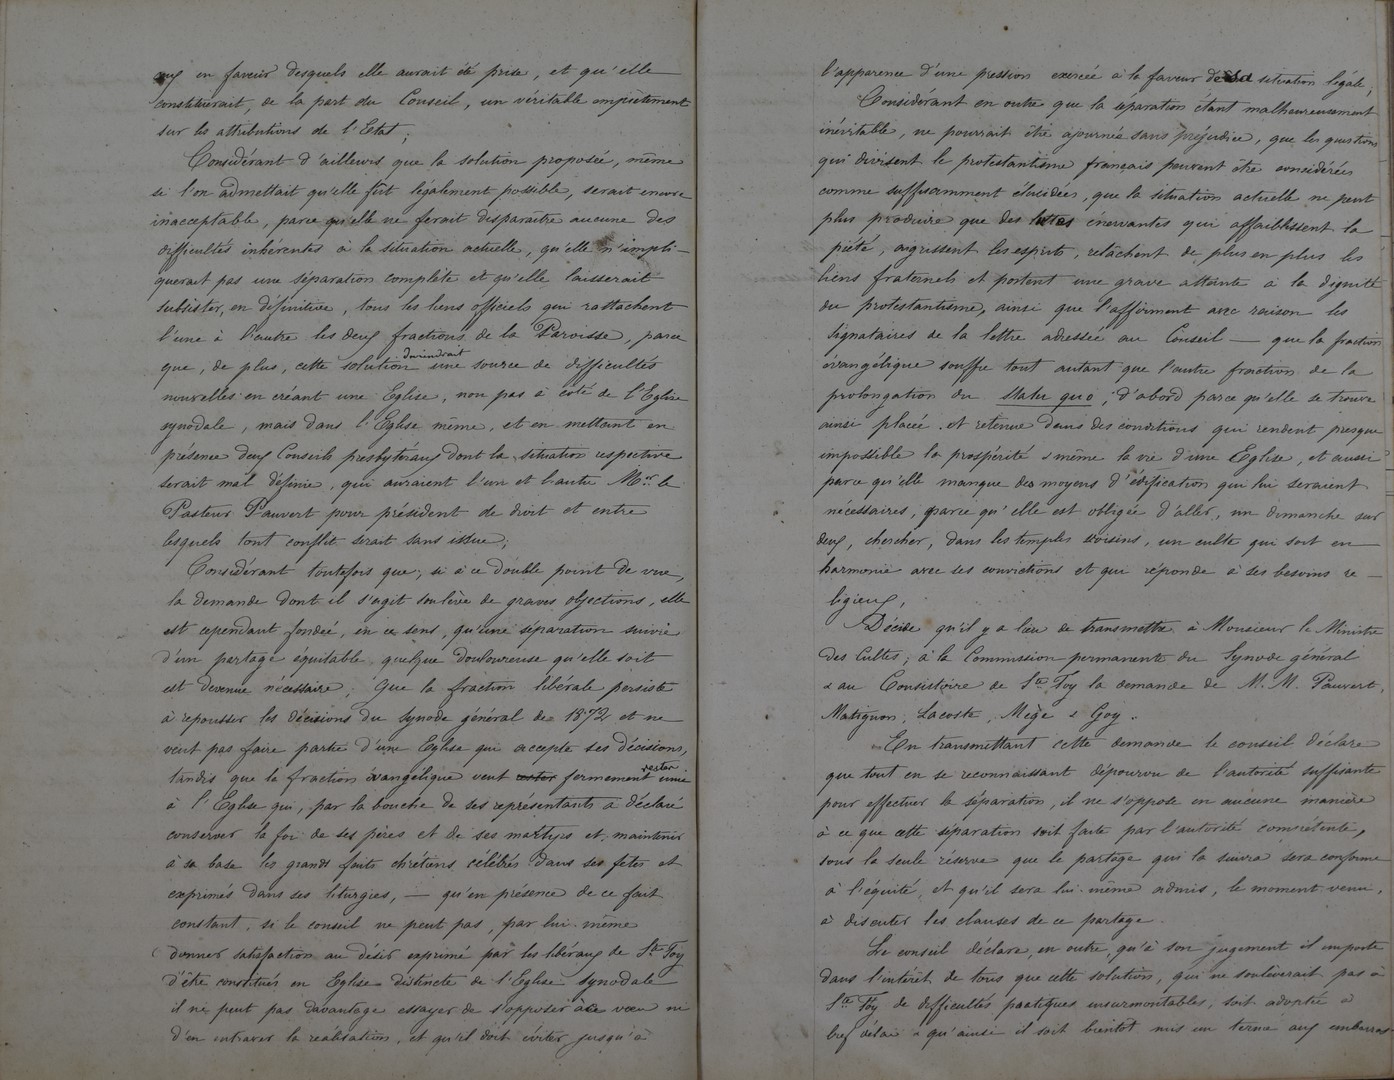 aux en faveur desquels elle aurait été prise, et qu'elle
constituerait, de la part du Conseil, un véritable empiètement
sur les attributions de l'Etat;
Considérant d'ailleurs que la solution proposée, même
si l'on admettait qu'elle fût légalement possible, serait encore
inacceptable, parce qu'elle ne ferait disparaître aucune des
difficultés inhérentes à la situation actuelle, qu'elle n'impli-
querait pas une séparation complète et qu'elle laisserait
subsister, en définitive, tous les liens officiels qui rattachent
l'une à l'autre les deux fractions de la Paroisse, parce
que, de plus, cette solution deviendrait une source de difficultés
nouvelles en créant une Eglise, non pas à côté de l'Eglise
synodale, mais dans l'Eglise même, et en mettant en
présence deux Conseils presbytéraux dont la situation respective
serait mal définie, qui auraient l'un et l'autre Mr. le
Pasteur Pauvert pour président de droit et entre
lesquels tout conflit serait sans issue;
Considérant toutefois que, si à ce double point de vue,
la demande dont il s'agit soulève de graves objections, elle
est cependant fondée, en ce sens, qu'une séparation suivie
d'un partage équitable quelque douloureuse qu'elle soit
est devenue nécessaire; Que la fraction libérale persiste
à repousser les décisions du Synode général de 1872 et ne
veut pas faire partie d'une Eglise qui accepte ses décisions,
tandis que la fraction évangélique veut rester fermement rester unie
à l'Eglise qui, par la bouche de ses représentants a déclaré
conserver la foi de ses pères et de ses martyrs et maintenir
à sa base les grands faits chrétiens célébrés dans ses fêtes et
exprimés dans ses liturgies, — qu'en présence de ce fait
constant, si le conseil ne peut pas, par lui-même
donner satisfaction au désir exprimé par les libéraux de Ste Foy
d'être constitués en Eglise distincte de l'Eglise synodale
il ne peut pas davantage essayer de s'opposer à ce vœu ni
d'en entraver la réalisation, et qu'il doit éviter jusqu'à
l'apparence d'une pression exercée à la faveur de sa situation légale,
Considérant en outre que la séparation étant malheureusement
inévitable, ne pourrait être ajournée sans préjudice, que les questions
qui divisent le protestantisme français peuvent être considérées
comme suffisamment élucidées, que la situation actuelle ne peut
plus produire que des luttes énervantes qui affaiblissent la
piété, aigrissent les esprits, relâchent de plus en plus les
liens fraternels et portent une grave atteinte à la dignité
du protestantisme, ainsi que l'affirment avec raison les
signataires de la lettre adressée au Conseil — que la fraction
évangélique souffre tout autant que l'autre fraction de la
prolongation du statu quo, d'abord parce qu'elle se trouve
ainsi placée et retenue dans des conditions qui rendent presque
impossible la prospérité & même la vie d'une Eglise, et aussi
parce qu'elle manque des moyens d'édification qui lui seraient
nécessaires, parce qu'elle est obligée d'aller, un dimanche sur
deux, chercher, dans les temples voisins, un culte qui soit en
harmonie avec ses convictions et qui réponde à ses besoins re-
ligieux,
Décide qu'il y a lieu de transmettre à Monsieur le Ministre
des Cultes, à la Commission permanente du Synode général
& au Consistoire de Ste Foy la demande de M. M. Pauvert,
Matignon, Lacoste, Mège & Goy.
En transmettant cette demande le conseil déclare
que tout en se reconnaissant dépourvu de l'autorité suffisante
pour effectuer la séparation, il ne s'oppose en aucune manière
à ce que cette séparation soit faite par l'autorité compétente,
sous la seule réserve que le partage qui la suivra sera conforme
à l'équité, et qu'il sera lui-même admis, le moment venu,
à discuter les clauses de ce partage.
Le conseil déclare, en outre, qu'à son jugement il importe
dans l'intérêt de tous que cette solution, qui ne soulèverait pas à
Ste Foy de difficultés pratiques insurmontables, soit adoptée à
bref délai & qu'ainsi il soit bientôt mis un terme aux embarras